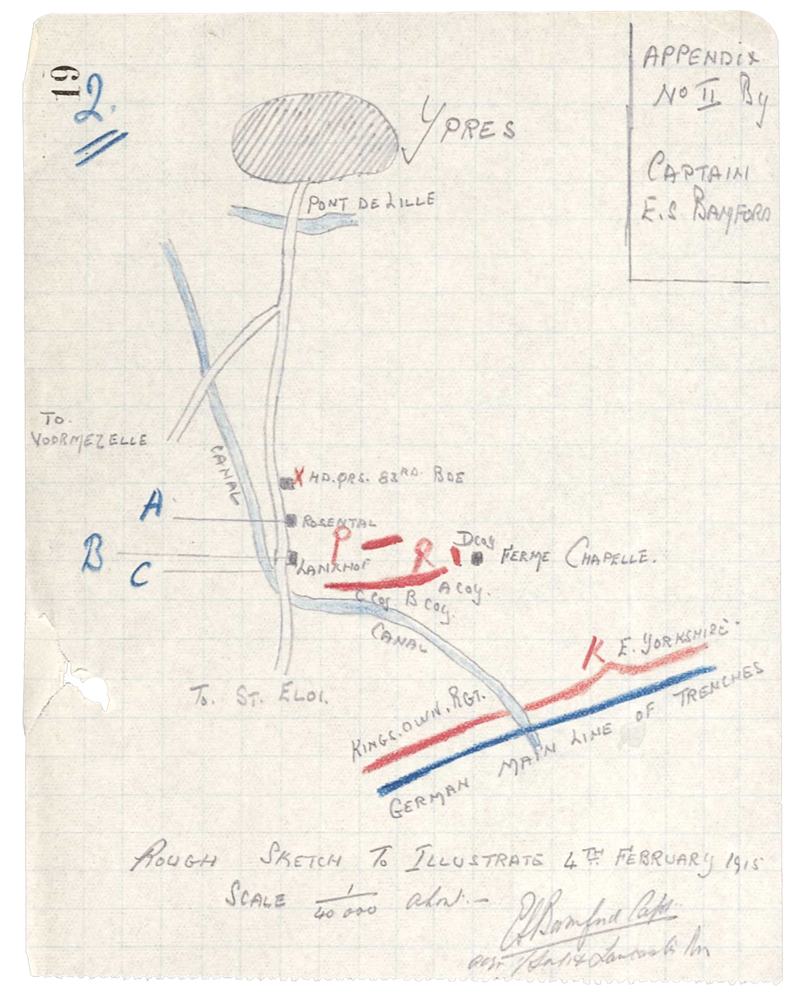 19
2.
APPENDIX
No II By
CAPTAIN
E.S BAMFORD
YPRES
PONT DE LILLE
TO.
VOORMEZELLE
CANAL
X HD.QRS. 83RD. BDE
A
ROSENTAL
P
R
D Coy
FERME CHAPELLE.
B
LANKHOF
C
A COY.
C Coy B COY.
CANAL
K E. YORKSHIRE.
TO. ST. ELOI.
KINGS. OWN. RGT.
GERMAN MAIN LINE OF TRENCHES
ROUGH SKETCH TO ILLUSTRATE 4TH FEBRUARY 1915
SCALE 1/40000 about.—
ES Bamford Capt.